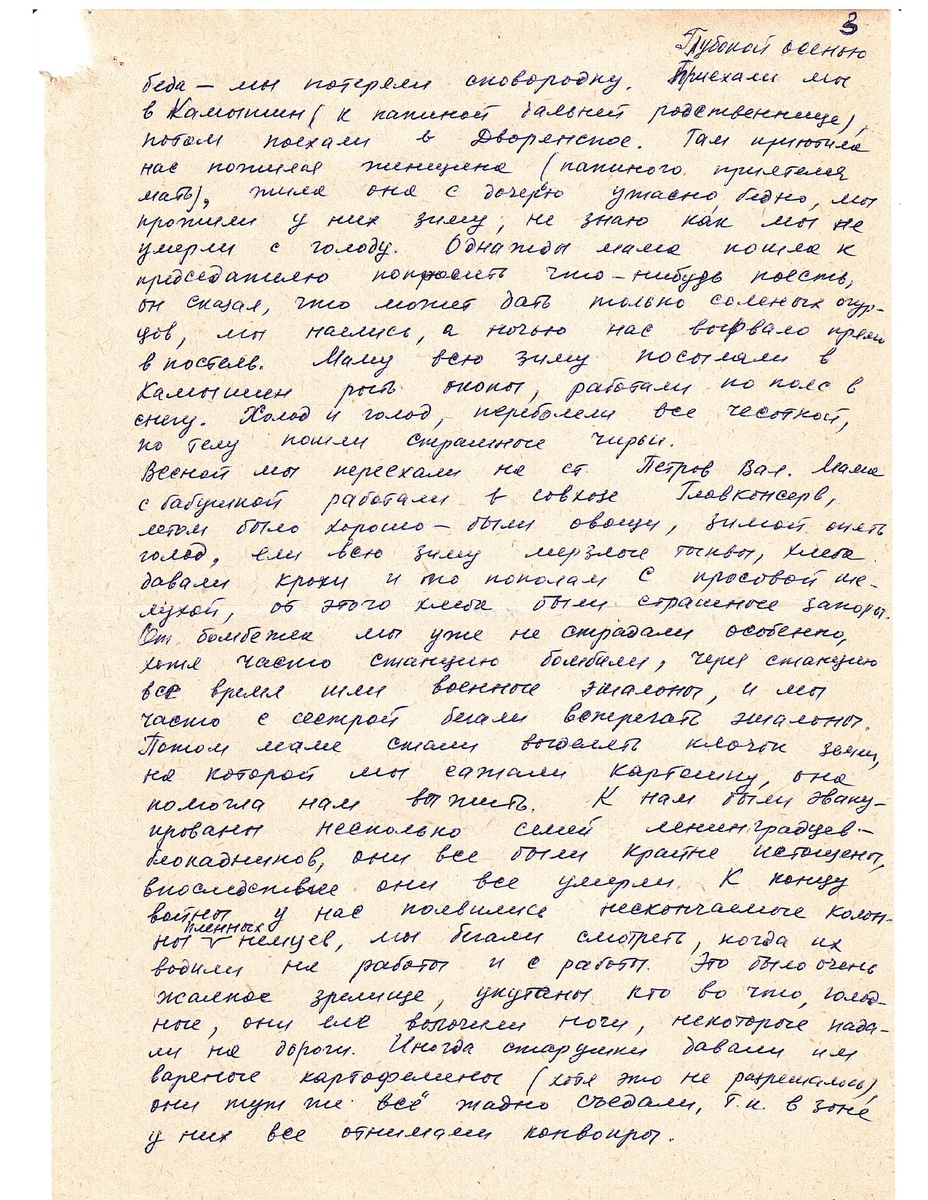 3
Глубокой осенью
беда – мы потеряли сковородку. Приехали мы
в Камышин (к папиной дальней родственнице),
потом поехали в Дворянское. Там приютила
нас пожилая женщина (папиного приятеля
мать), жила она с дочерью ужасно бедно, мы
прожили у них зиму, не знаю как мы не
умерли с голоду. Однажды мама пошла к
председателю попросить что-нибудь поесть,
он сказал, что может дать только соленых огур-
цов, мы наелись, а ночью нас вырвало прямо
в постель. Маму всю зиму посылали в
Камышин рыть окопы, работали по пояс в
снегу. Холод и голод, переболели все чесоткой,
по телу пошли страшные чирьи.
Весной мы переехали на ст. Петров Вал. Мама
с бабушкой работали в совхозе Главконсерв,
летом было хорошо – были овощи, зимой опять
голод, ели всю зиму мерзлые тыквы, хлеба
давали крохи и то пополам с просовой ше-
лухой, от этого хлеба были страшные запоры.
От бомбежек мы уже не страдали особенно,
хотя часто станцию бомбили, через станцию
все время шли военные эшалоны, и мы
часто с сестрой бегали встречать эшалоны.
Потом маме стали выделять клочок земли,
на которой мы сажали картошку, она
помогла нам выжить. К нам были эваку-
ированы несколько семей ленинградцев-
блокадников, они все были крайне истощены,
впоследствие они все умерли. К концу
войны у нас появились нескончаемые колон-
ны пленных немцев, мы бегали смотреть, когда их
водили на работы и с работы. Это было очень
жалкое зрелище, укутаны кто во что, голод-
ные, они еле волочили ноги, некоторые пада-
ли на дороги. Иногда старушки давали им
вареные картофелины (хотя это не разрешалось),
они тут же всё жадно съедали, т.к. в зоне
у них все отнимали конвоиры.